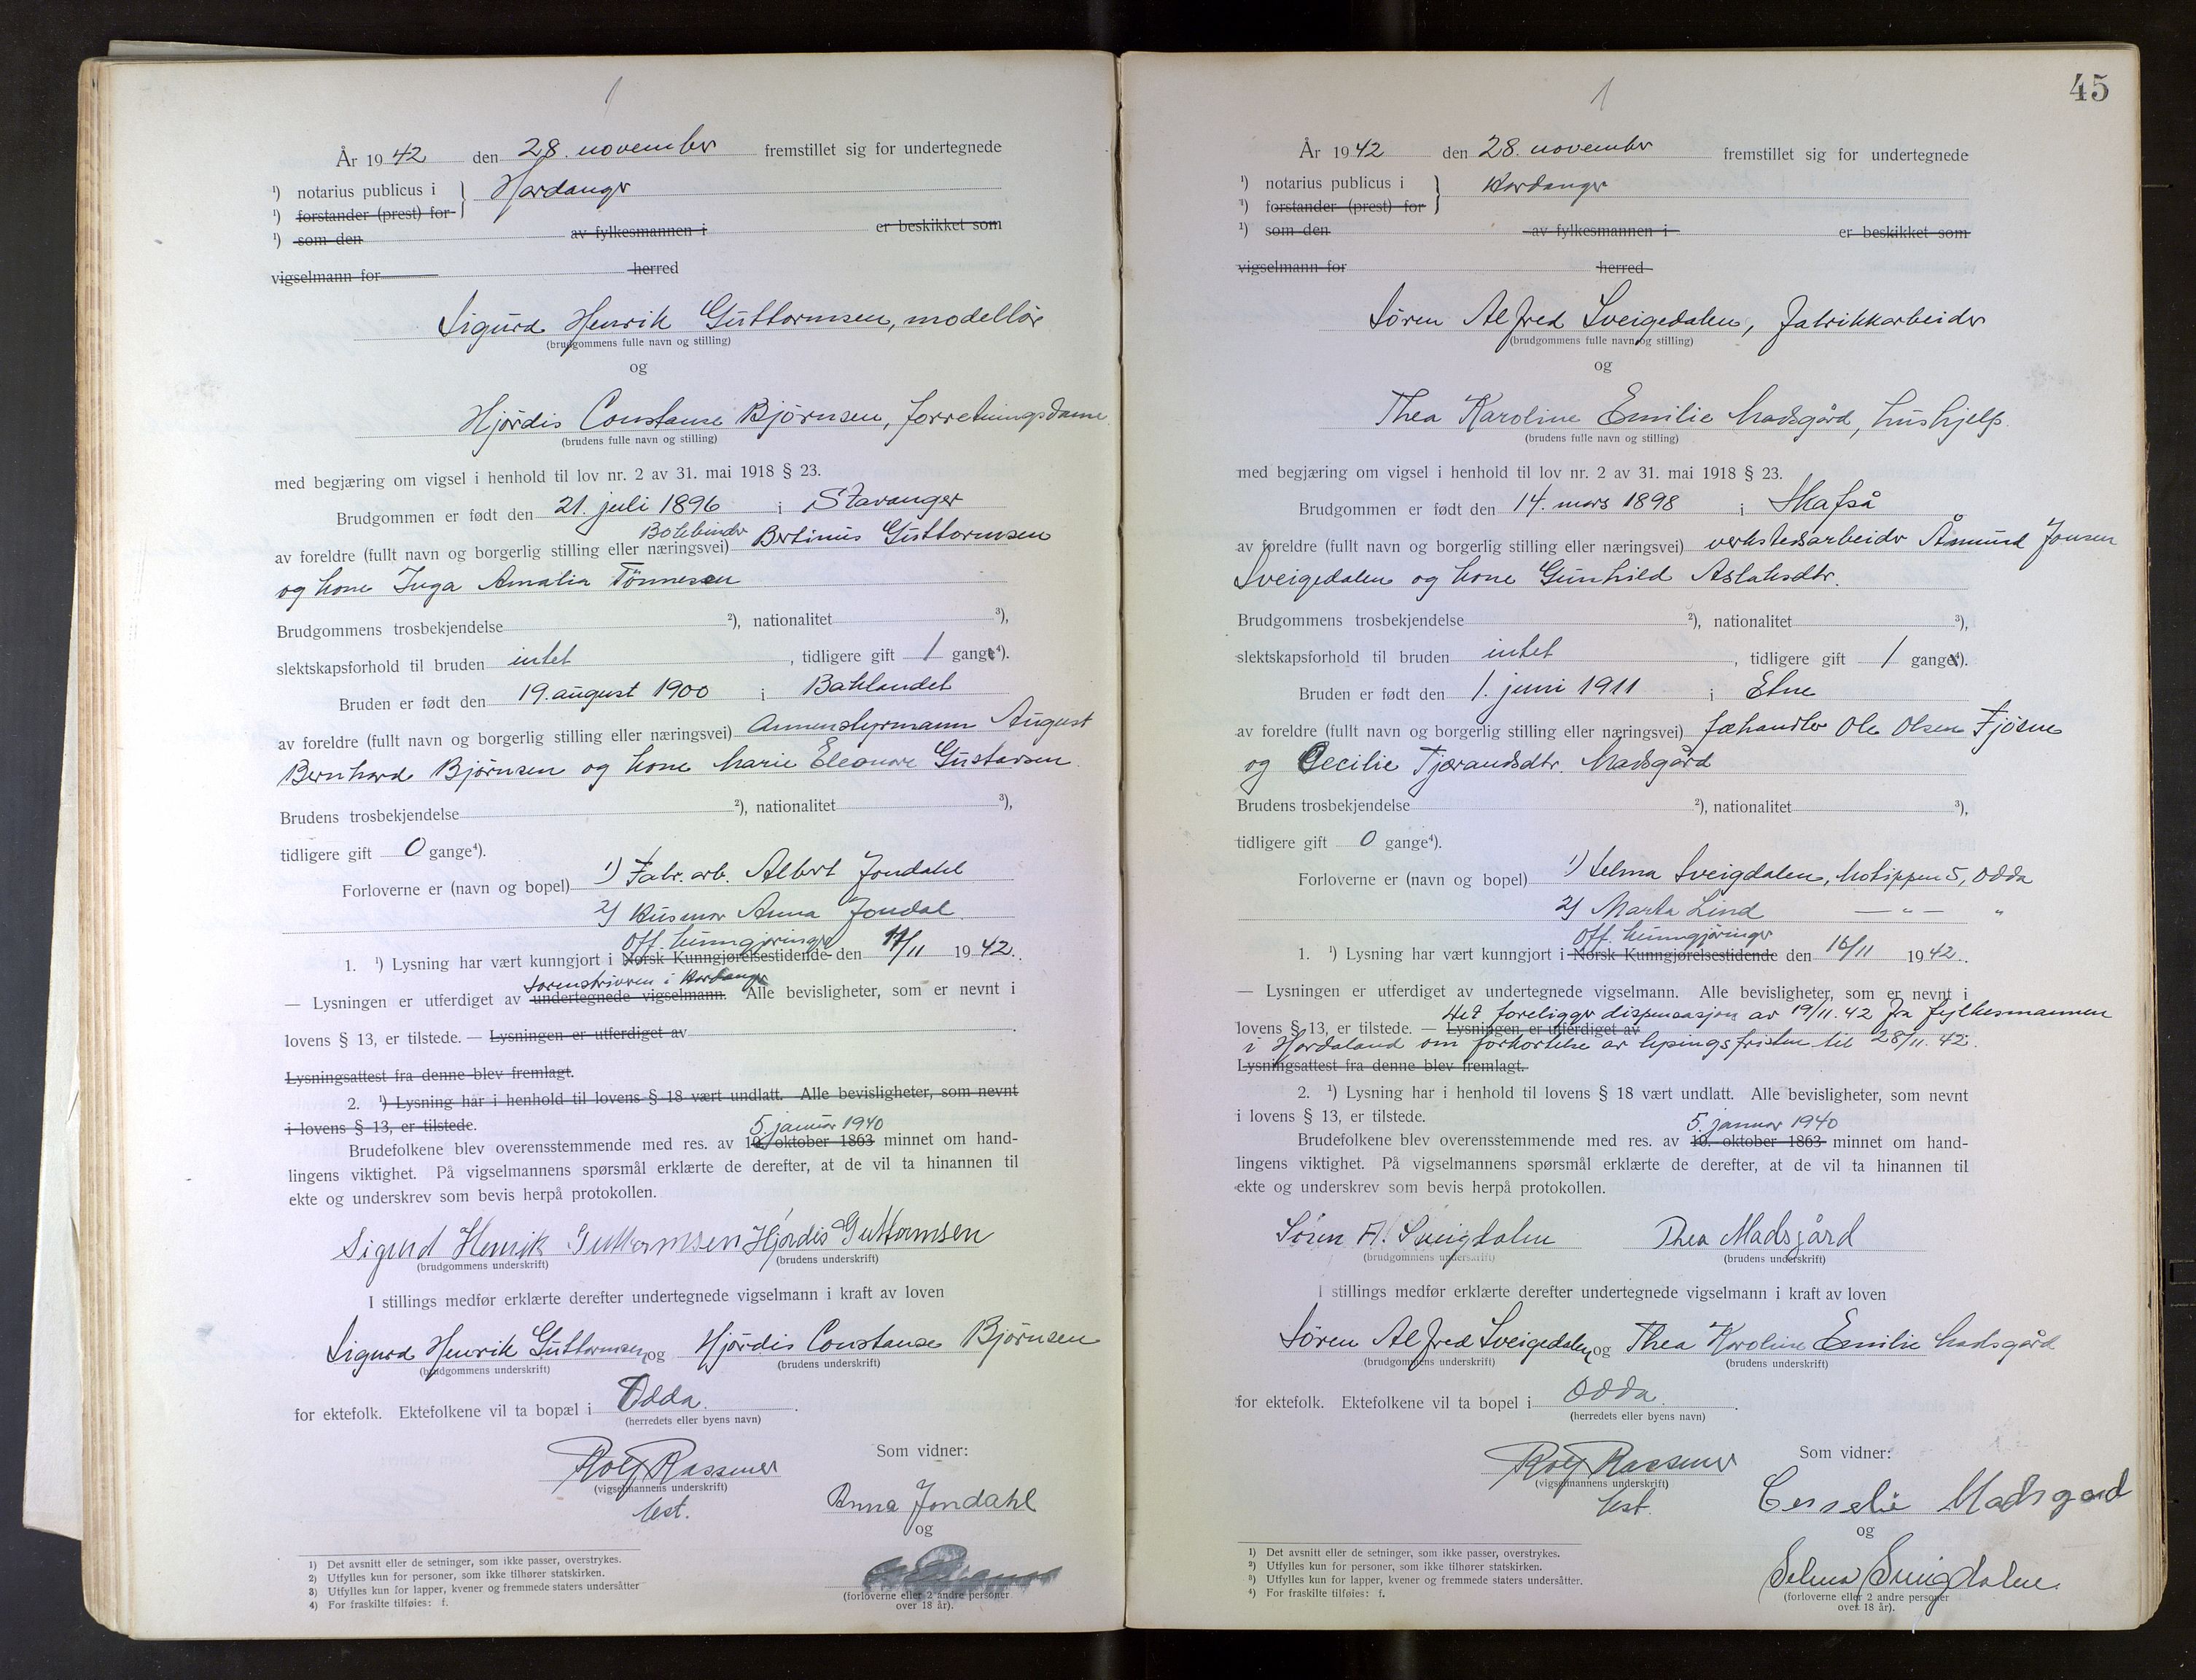 År 1942 den 28. november fremstillet sig for undertegnede
¹) notarius publicus i } Hardanger
¹) forstander (prest) for
¹) som den av fylkesmannen i er beskikket som
vigselmann for herred
Sigurd Henrik Guttormsen, modellør
(brudgommens fulle navn og stilling)
og
Hjördis Constanse Björnsen, forretningsdame
(brudens fulle navn og stilling)
med begjæring om vigsel i henhold til lov nr. 2 av 31. mai 1918 § 23.
Brudgommen er født den 21. juli 1896 i Stavanger
Bokbinder
av foreldre (fullt navn og borgerlig stilling eller næringsvei) Bertinius Guttormsen
og kone Inga Amalia Tönnesen
Brudgommens trosbekjendelse ²), nationalitet ³),
slektskapsforhold til bruden intet, tidligere gift 1 gange⁴).
Bruden er født den 19. august 1900 i Baklandet
av foreldre (fullt navn og borgerlig stilling eller næringsvei) Annenstyrmann August
Bernhard Bjørnsen og kone Marie Eleonore Gustavsen
Brudens trosbekjendelse ²), nationalitet ³),
tidligere gift 0 gange⁴).
Forloverne er (navn og bopel) 1) Fabr. arb. Albert Jondahl
2) Husmor Anna Jondal
Off. kunngjøringer
1. ¹) Lysning har vært kunngjort i Norsk Kunngjørelsestidende den 17/11 1942.
Sorenskriveren i Hardanger
— Lysningen er utferdiget av undertegnede vigselmann. Alle bevisligheter, som er nevnt i
lovens § 13, er tilstede. — Lysningen er utferdiget av
Lysningsattest fra denne blev fremlagt.
2. ¹) Lysning har i henhold til lovens § 18 vært undlatt. Alle bevisligheter, som nevnt
i lovens § 13, er tilstede.
5. januar 1940
Brudefolkene blev overensstemmende med res. av 10. oktober 1863 minnet om hand-
lingens viktighet. På vigselmannens spørsmål erklærte de derefter, at de vil ta hinannen til
ekte og underskrev som bevis herpå protokollen.
Sigurd Henrik Guttormsen Hjördis Guttormsen
(brudgommens underskrift) (brudens underskrift)
I stillings medfør erklærte derefter undertegnede vigselmann i kraft av loven
Sigurd Henrik Guttormsen og Hjördis Constanse Björnsen
(brudgommens underskrift) (brudens underskrift)
for ektefolk. Ektefolkene vil ta bopæl i Odda.
(herredets eller byens navn)
Som vidner:
Rolf Rassmer
(vigselmannens underskrift)
Anna Jondahl
og
(forloverne eller 2 andre personer
over 18 år).
1) Det avsnitt eller de setninger, som ikke passer, overstrykes.
2) Utfylles kun for personer, som ikke tilhører statskirken.
3) Utfylles kun for lapper, kvener og fremmede staters undersåtter
4) For fraskilte tilføies: f.
45
År 1942 den 28. november fremstillet sig for undertegnede
¹) notarius publicus i } Hardanger
¹) forstander (prest) for
¹) som den av fylkesmannen i er beskikket som
vigselmann for herred
Søren Alfred Sveigedalen, fabrikkarbeider
(brudgommens fulle navn og stilling)
og
Thea Karoline Emilie Madsgård, hushjelp.
(brudens fulle navn og stilling)
med begjæring om vigsel i henhold til lov nr. 2 av 31. mai 1918 § 23.
Brudgommen er født den 14. mars 1898 i Skafså
av foreldre (fullt navn og borgerlig stilling eller næringsvei) verkstedsarbeider Åmund Jonsen
Sveigedalen og kone Gunhild Aslaksdtr.
Brudgommens trosbekjendelse ²), nationalitet ³),
slektskapsforhold til bruden intet, tidligere gift 1 gange⁴).
Bruden er født den 1. juni 1911 i Etne
av foreldre (fullt navn og borgerlig stilling eller næringsvei) fehandler Ole Olsen Fjøsne
og Cecilie Tjerandsdtr. Madsgård
Brudens trosbekjendelse ²), nationalitet ³),
tidligere gift 0 gange⁴).
Forloverne er (navn og bopel) 1) Selma Sveigdalen, Motippen 5, Odda
2) Marta Lind — " — "
Off. kunngjøringer
1. ¹) Lysning har vært kunngjort i Norsk Kunngjørelsestidende den 16/11 1942.
— Lysningen er utferdiget av undertegnede vigselmann. Alle bevisligheter, som er nevnt i
Det foreligger dispensasjon av 19/11.42 fra fylkesmannen
lovens § 13, er tilstede. — Lysningen er utferdiget av
i Hordaland om forkortelse av lysningsfristen til 28/11.42.
Lysningsattest fra denne blev fremlagt.
2. ¹) Lysning har i henhold til lovens § 18 vært undlatt. Alle bevisligheter, som nevnt
i lovens § 13, er tilstede.
5. januar 1940
Brudefolkene blev overensstemmende med res. av 10. oktober 1863 minnet om hand-
lingens viktighet. På vigselmannens spørsmål erklærte de derefter, at de vil ta hinannen til
ekte og underskrev som bevis herpå protokollen.
Søren A. Sveigdalen Thea Madsgård
(brudgommens underskrift) (brudens underskrift)
I stillings medfør erklærte derefter undertegnede vigselmann i kraft av loven
Søren Alfred Sveigedalen og Thea Karoline Emilie Madsgård
(brudgommens underskrift) (brudens underskrift)
for ektefolk. Ektefolkene vil ta bopel i Odda.
(herredets eller byens navn)
Som vidner:
Rolf Rassmer
(vigselmannens underskrift)
Madsgard
og
Selma Sveigdalen.
(forloverne eller 2 andre personer
over 18 år).
1) Det avsnitt eller de setninger, som ikke passer, overstrykes.
2) Utfylles kun for personer, som ikke tilhører statskirken.
3) Utfylles kun for lapper, kvener og fremmede staters undersåtter.
4) For fraskilte tilføies: f.